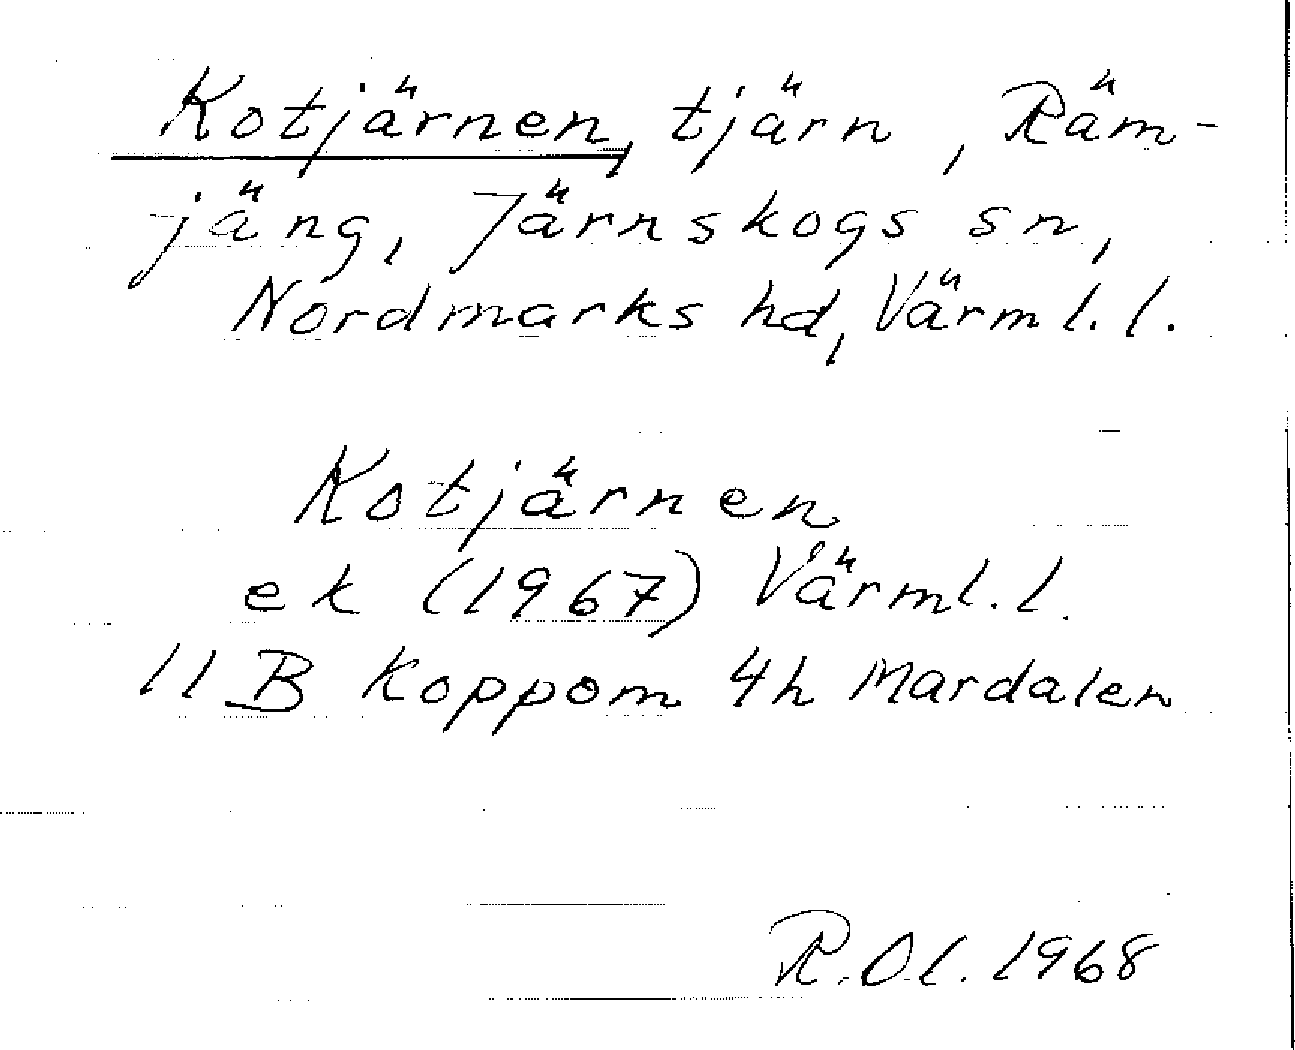 Kotjärnen, tjärn, Räm-
jäng, Järnskogs sn,
Nordmarks hd, Värml. l.
Kotjärnen
ek (1967) Värml. l.
11 B Koppom 4h Mardalen
R. Ol. 1968